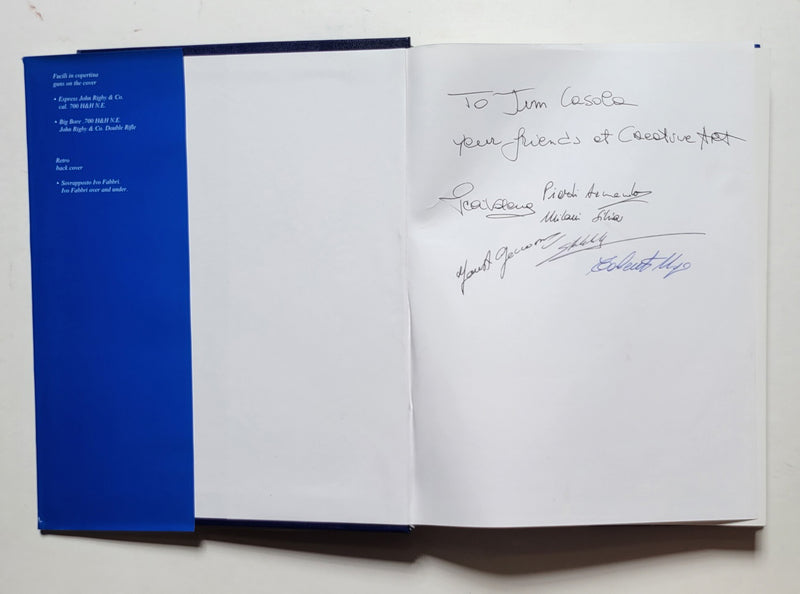 Fucili in copertina
guns on the cover
• Express John Rigby & Co.
cal. 700 H&H N.E.
• Big Bore .700 H&H N.E.
John Rigby & Co. Double Rifle
Retro
back cover
• Sovrapposto Ivo Fabbri
Ivo Fabbri over and under.
To Jim Casola
your friends at Creative Art
Piardi Armando
Milani Silvia